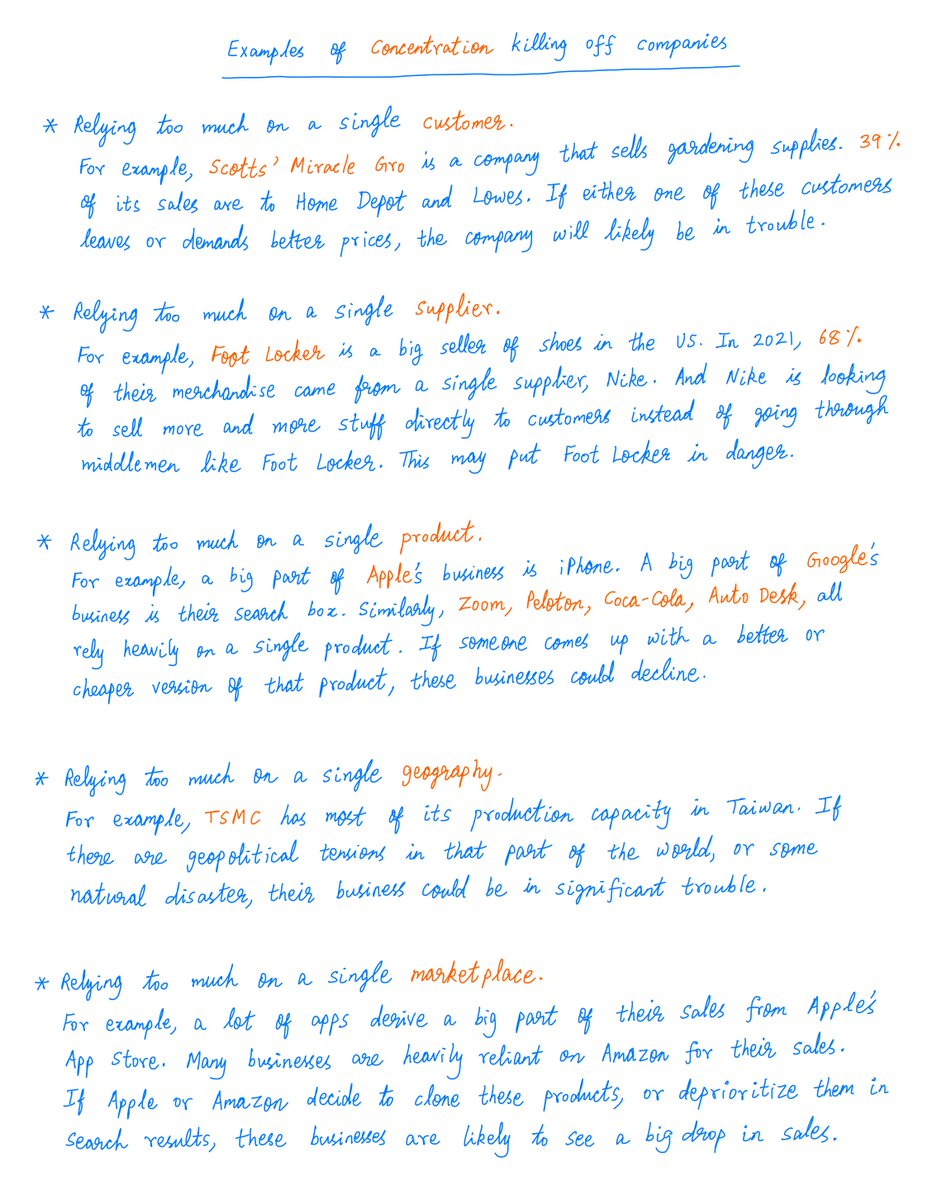 Examples of Concentration killing off companies
* Relying too much on a single customer.
For example, Scotts' Miracle Gro is a company that sells gardening supplies. 39%
of its sales are to Home Depot and Lowes. If either one of these customers
leaves or demands better prices, the company will likely be in trouble.
* Relying too much on a single supplier.
For example, Foot Locker is a big seller of shoes in the US. In 2021, 68%
of their merchandise came from a single supplier, Nike. And Nike is looking
to sell more and more stuff directly to customers instead of going through
middlemen like Foot Locker. This may put Foot Locker in danger.
* Relying too much on a single product.
For example, a big part of Apple's business is iPhone. A big part of Google's
business is their search box. Similarly, Zoom, Peloton, Coca-Cola, Auto Desk, all
rely heavily on a single product. If someone comes up with a better or
cheaper version of that product, these businesses could decline.
* Relying too much on a single geography.
For example, TSMC has most of its production capacity in Taiwan. If
there are geopolitical tensions in that part of the world, or some
natural disaster, their business could be in significant trouble.
* Relying too much on a single marketplace.
For example, a lot of apps derive a big part of their sales from Apple's
App Store. Many businesses are heavily reliant on Amazon for their sales.
If Apple or Amazon decide to clone these products, or deprioritize them in
search results, these businesses are likely to see a big drop in sales.